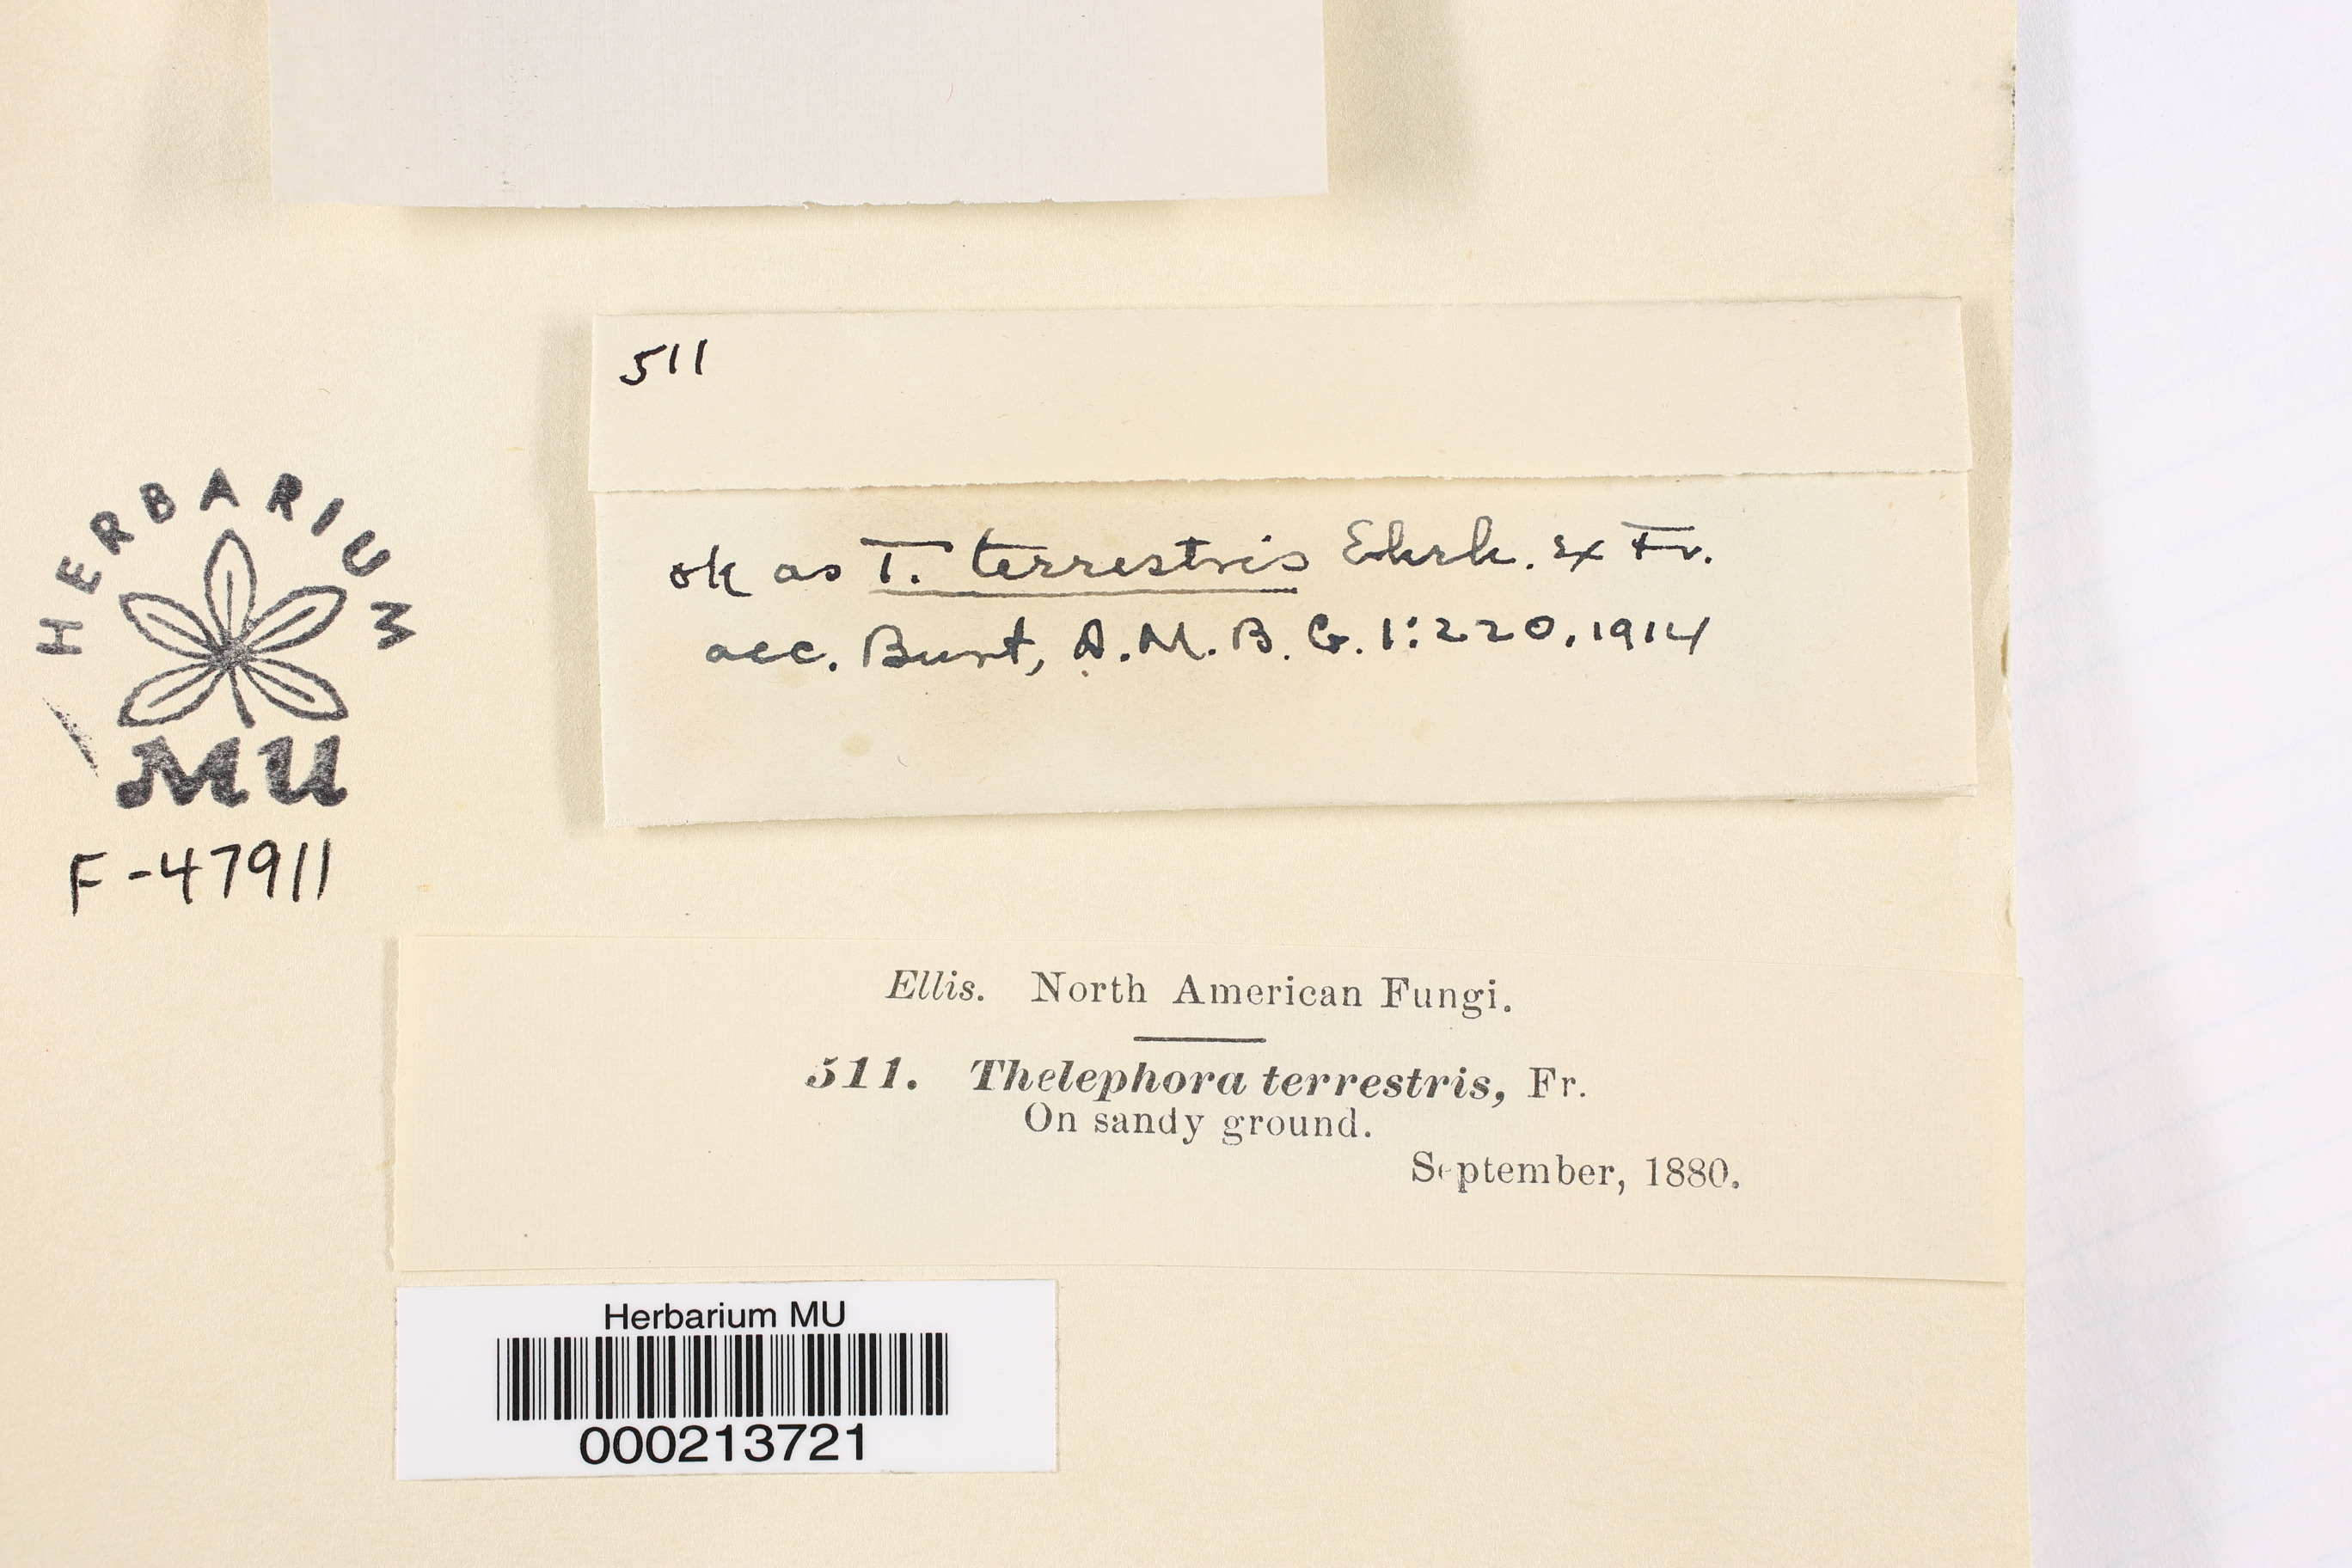 511
ok as T. terrestris Ehrh. ex Fr.
acc. Burt, A.M.B.G. 1:220.1914
HERBARIUM
MU
F-47911
Ellis. North American Fungi.
511. Thelephora terrestris, Fr.
On sandy ground.
September, 1880.
Herbarium MU
000213721